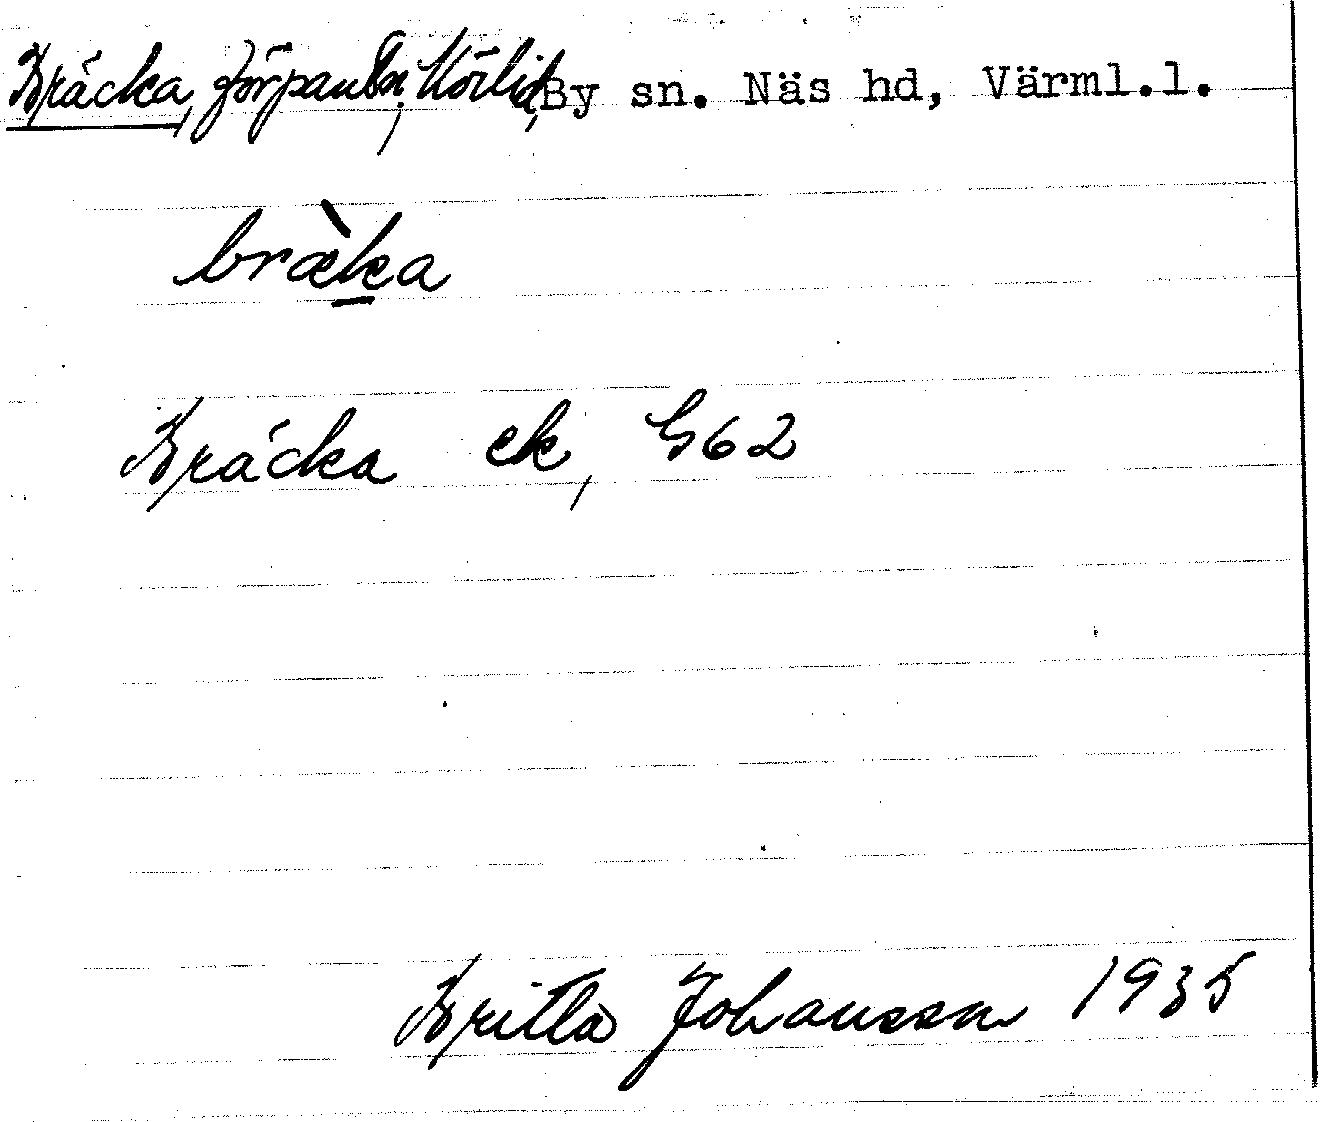 Bräcka, förpantn, Hörlid, By sn. Näs hd, Värml.l.
bràka
Bräcka ek, G62
Britta Johansson 1935